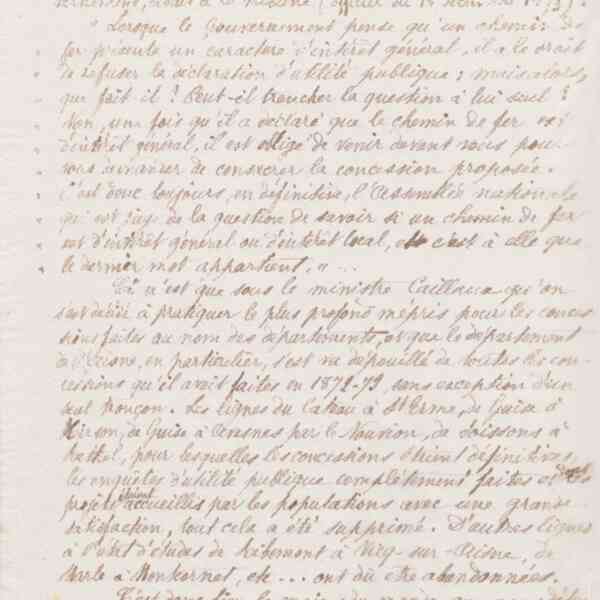 " Lorsque le Gouvernement pense qu'un chemin de
fer présente un caractère d'intérêt général, il a le droit
de refuser la déclaration d'utilité publique ; mais alors,
que fait-il ? Peut-il trancher la question à lui seul ?
Non, une fois qu'il a déclaré que le chemin de fer est
d'intérêt général, il est obligé de venir devant vous pour
vous demander de consacrer la concession proposée.
C'est donc toujours, en définitive, l'Assemblée nationale
qui est juge de la question de savoir si un chemin de fer
est d'intérêt général ou d'intérêt local, et c'est à elle que
le dernier mot appartient. " ...
Ce n'est que sous le ministre Caillaux qu'on
s'est décidé à pratiquer le plus profond mépris pour les conces
sions faites au nom des départements, et que le département
de l'Aisne, en particulier, s'est vu dépouillé de toutes les con-
cessions qu'il avait faites en 1872-73, sans exception d'un
seul tronçon. Les lignes du Cateau à St Erme, de Guise à
Hirson, de Guise à Avesnes par le Nouvion, de Soissons à
Rethel, pour lesquelles les concessions étaient définitives,
les enquêtes d'utilité publique complètement faites et les
projets étaient accueillis par les populations avec une grande
satisfaction, tout cela a été supprimé. D'autres lignes
à l'état d'études de Ribemont à Vicq-sur-Aisne, de
Marle à Montcornet, etc... ont dû être abandonnées.